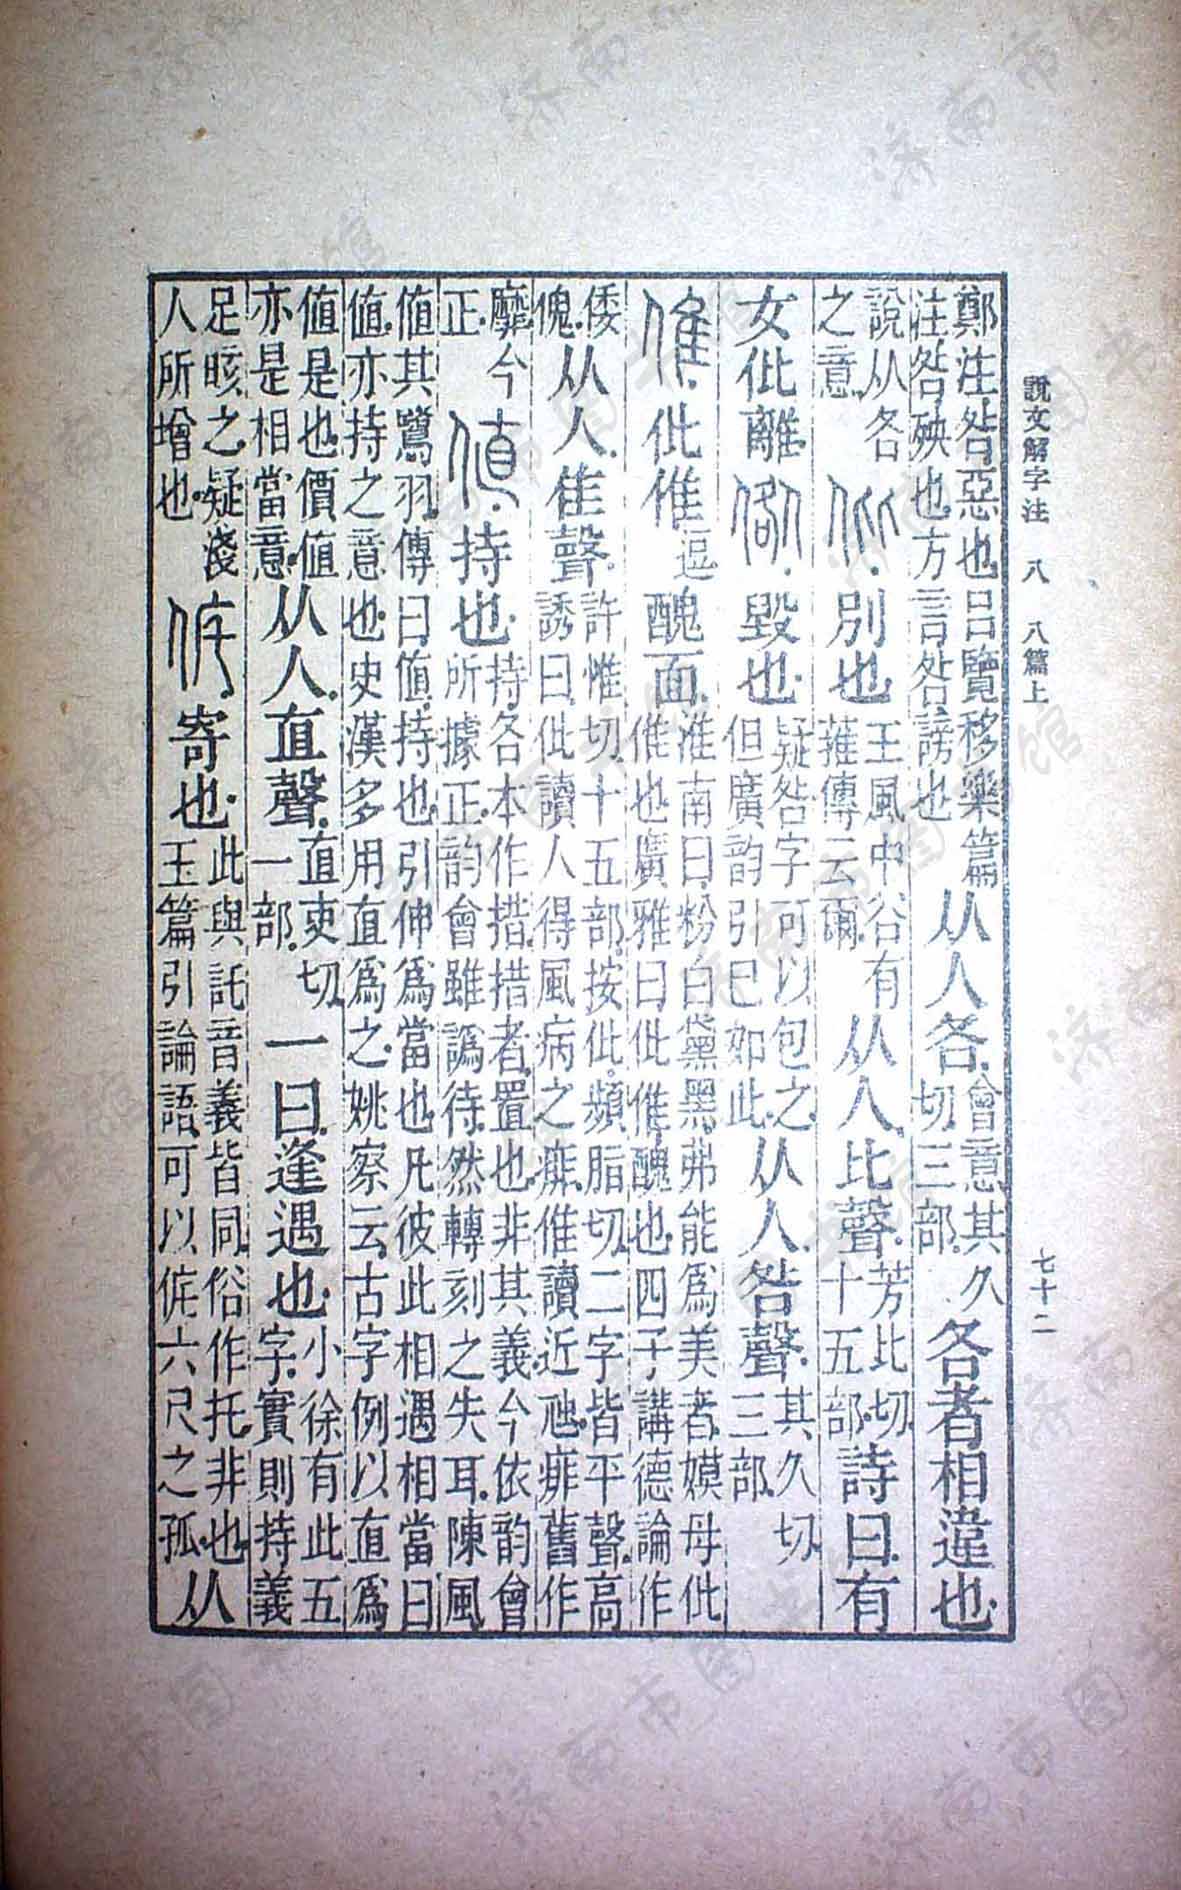 說文解字注 八 八篇上 七十二
鄭注咎惡也呂覽移樂篇
注咎殃也方言咎謗也
从人各
會意其久
切三部
各者相違也
說从各
之意
仳別也
王風中谷有
蓷傳云爾
从人比聲
芳比切
十五部
詩曰有
女仳離
㑜毀也
疑咎字可以包之
但廣韵引已如此
从人咎聲
其久切
三部
倠仳倠
逗
醜面
淮南曰粉白黛黑弗能爲美者嫫母仳
倠也廣雅曰仳倠醜也四子講德論作
倭
傀
从人隹聲
許惟切十五部按仳頻脂切二字皆平聲高
誘曰仳讀人得風病之痱倠讀近虺痱舊作
靡今
正
值持也
持各本作措措者置也非其義今依韵會
所據正韵會雖譌待然轉刻之失耳陳風
值其鷺羽傳曰值持也引伸爲當也凡彼此相遇相當曰
值亦持之意也史漢多用直爲之姚察云古字例以直爲
值是也價值
亦是相當意
从人直聲
直吏切
一部
一曰逢遇也
小徐有此五
字實則持義
足晐之疑淺
人所增也
侂寄也
此與託音義皆同俗作托非也
玉篇引論語可以侂六尺之孤
从
济南市图书馆